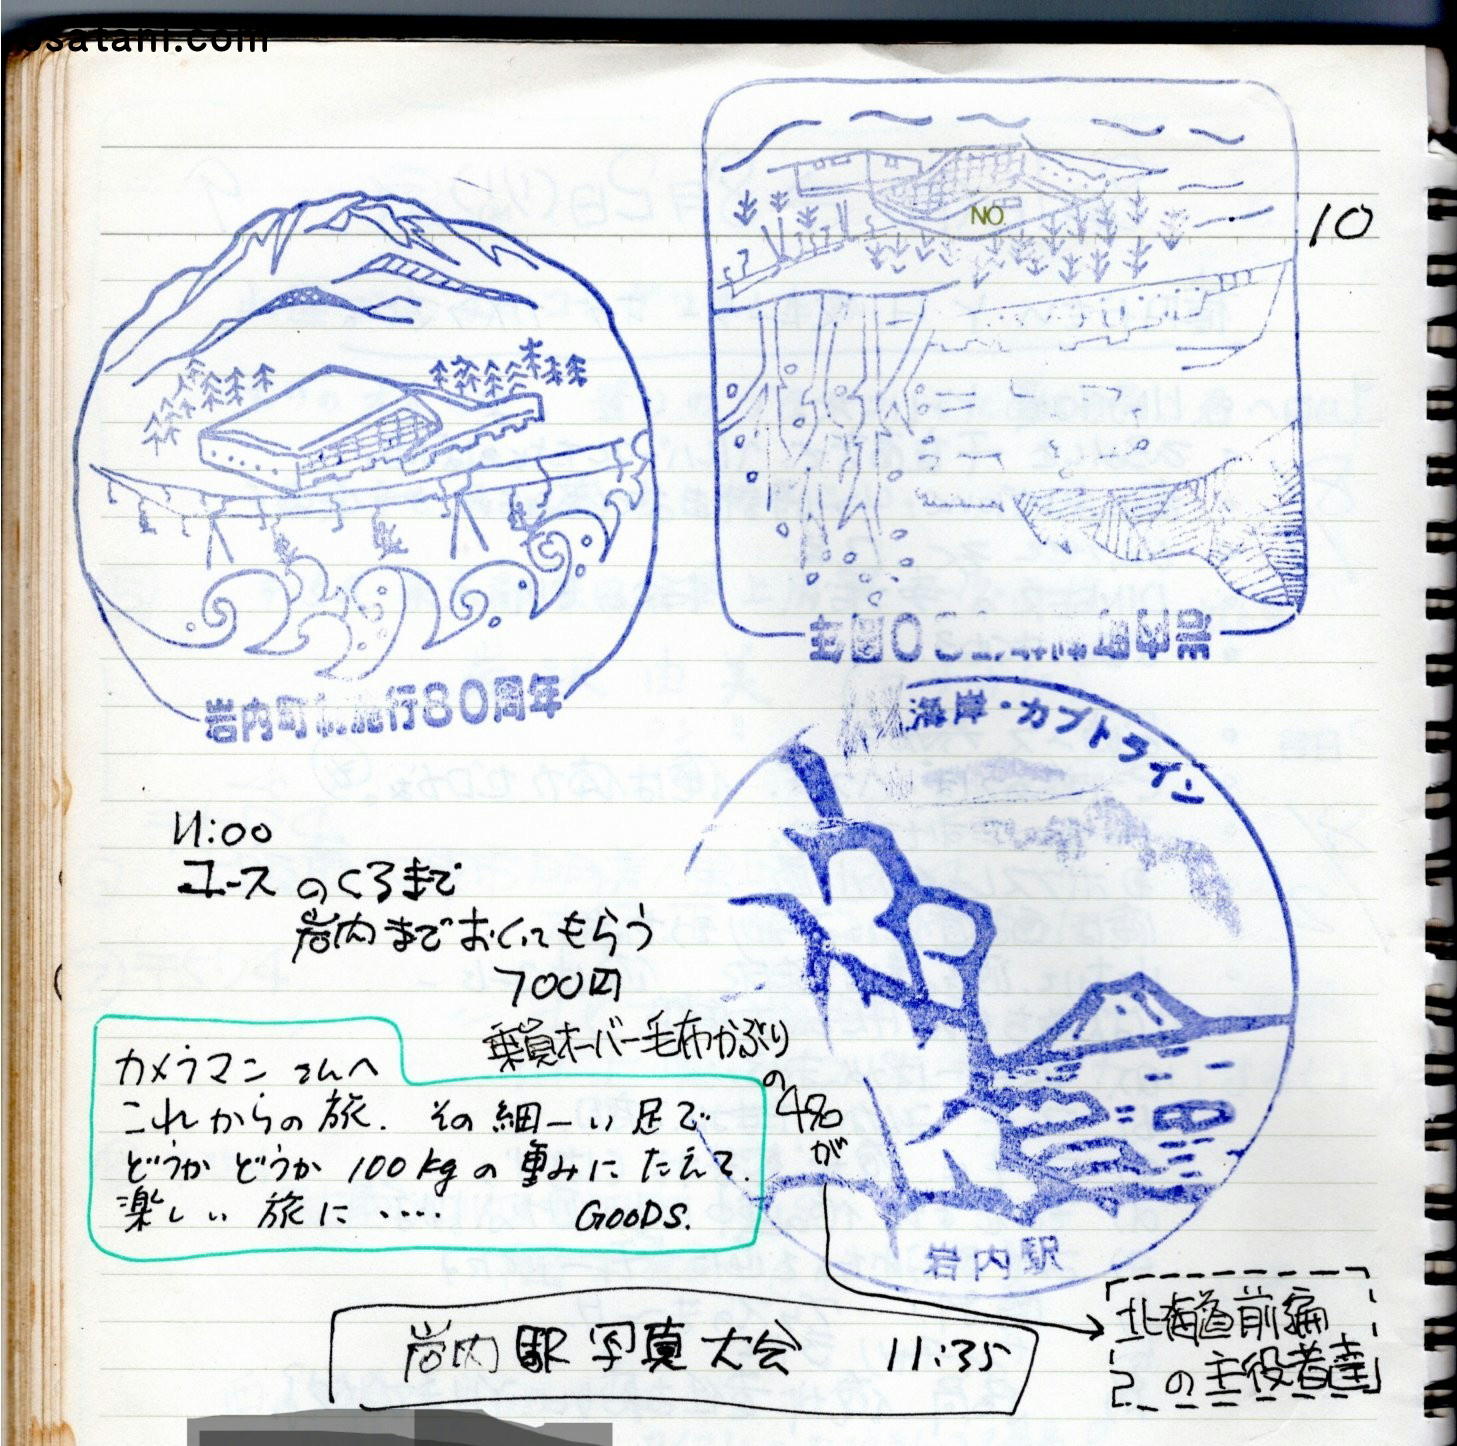 osatani.com
NO.
10
岩内町制施行80周年
海岸・カブトライン
岩内駅
11:00
ユースのくるまで
岩内までおくってもらう
700円
乗員オーバー毛布かぶり
の4名
が
カメラマンさんへ
これからの旅. その細ーい足で
どうか どうか 100kgの重みにたえて.
楽しい旅に ‥‥ GOODS.
岩内駅写真大会 11:35
北海道前編
の主役者達